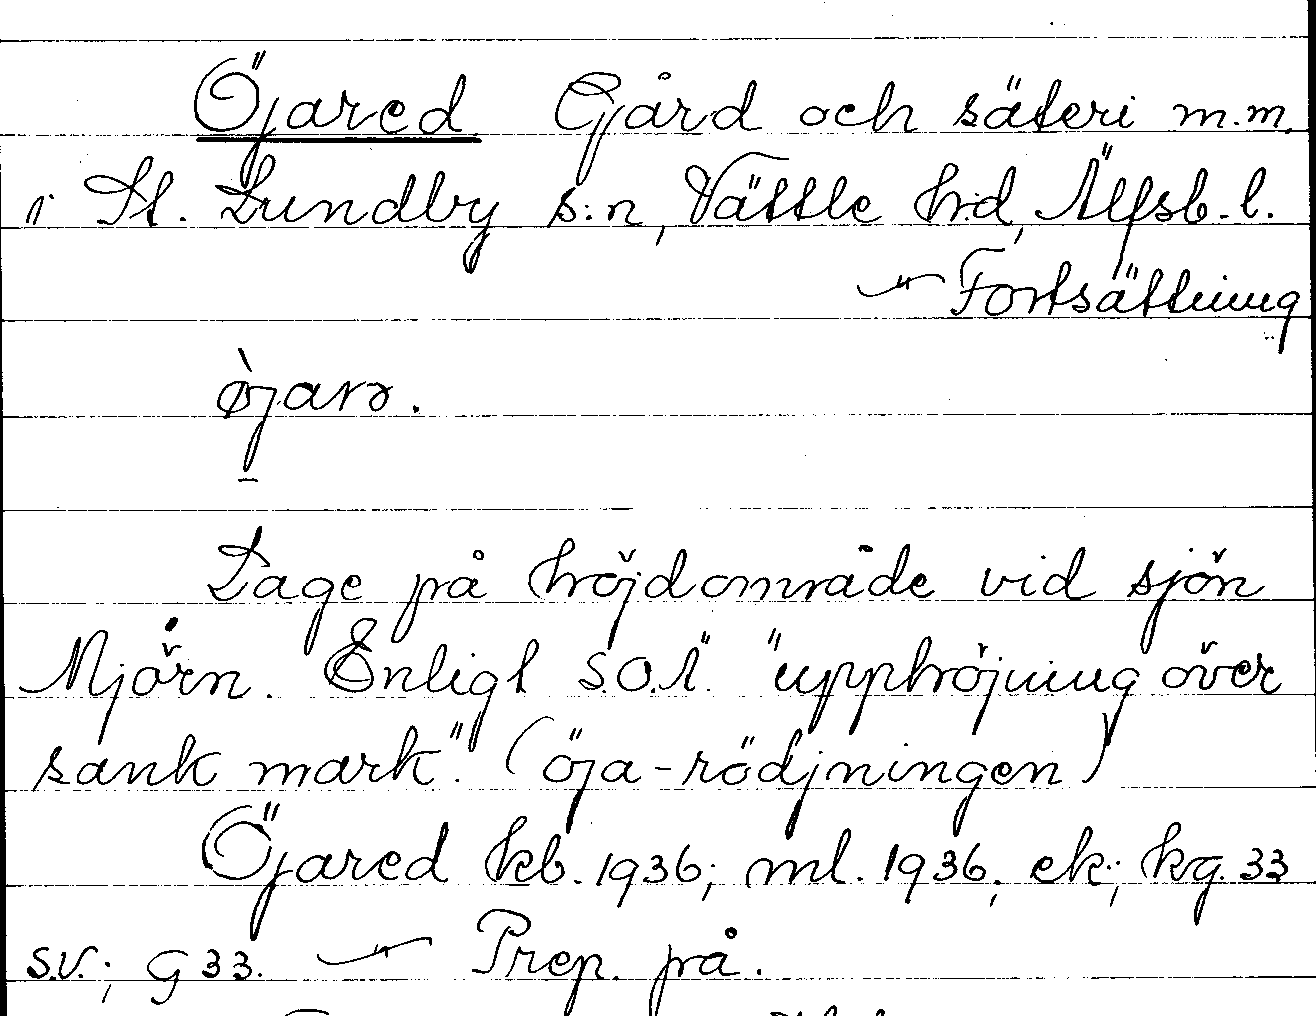 Öjared Gård och säteri m.m.
i St. Lundby s:n, Vättle hd, Älfsb. l.
—"— Fortsättning
òjarə.
Läge på höjdområde vid sjön
Mjörn. Enligt S.O.Ä. "upphöjning över
sank mark". (öja-rödjningen)
Öjared kb. 1936; ml. 1936; ek.; kg. 33
s.v.; G 33. —"— Prep. på.